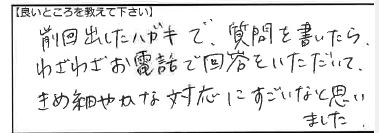 【良いところを教えて下さい】
前回出したハガキで、質問を書いたら、
わざわざお電話で回答をいただいて、
きめ細やかな対応にすごいなと思い
ました。